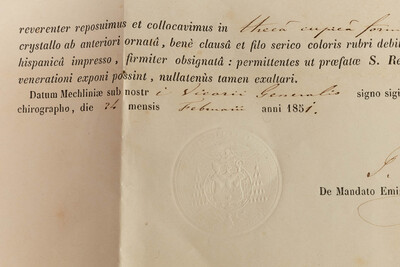 reverenter reposuimus et collocavimus in thecâ cupreâ form
crystallo ab anteriori ornatâ, benè clausâ et filo serico coloris rubri debit
hispanicâ impresso, firmiter obsignatâ : permittentes ut præfatæ S. Re
venerationi exponi possint, nullatenùs tamen exaltari.
Datum Mechliniæ sub nostr i Vicarii Generalis signo sigi
chirographo, die 24 mensis Februarii anni 1851.
De Mandato Emi